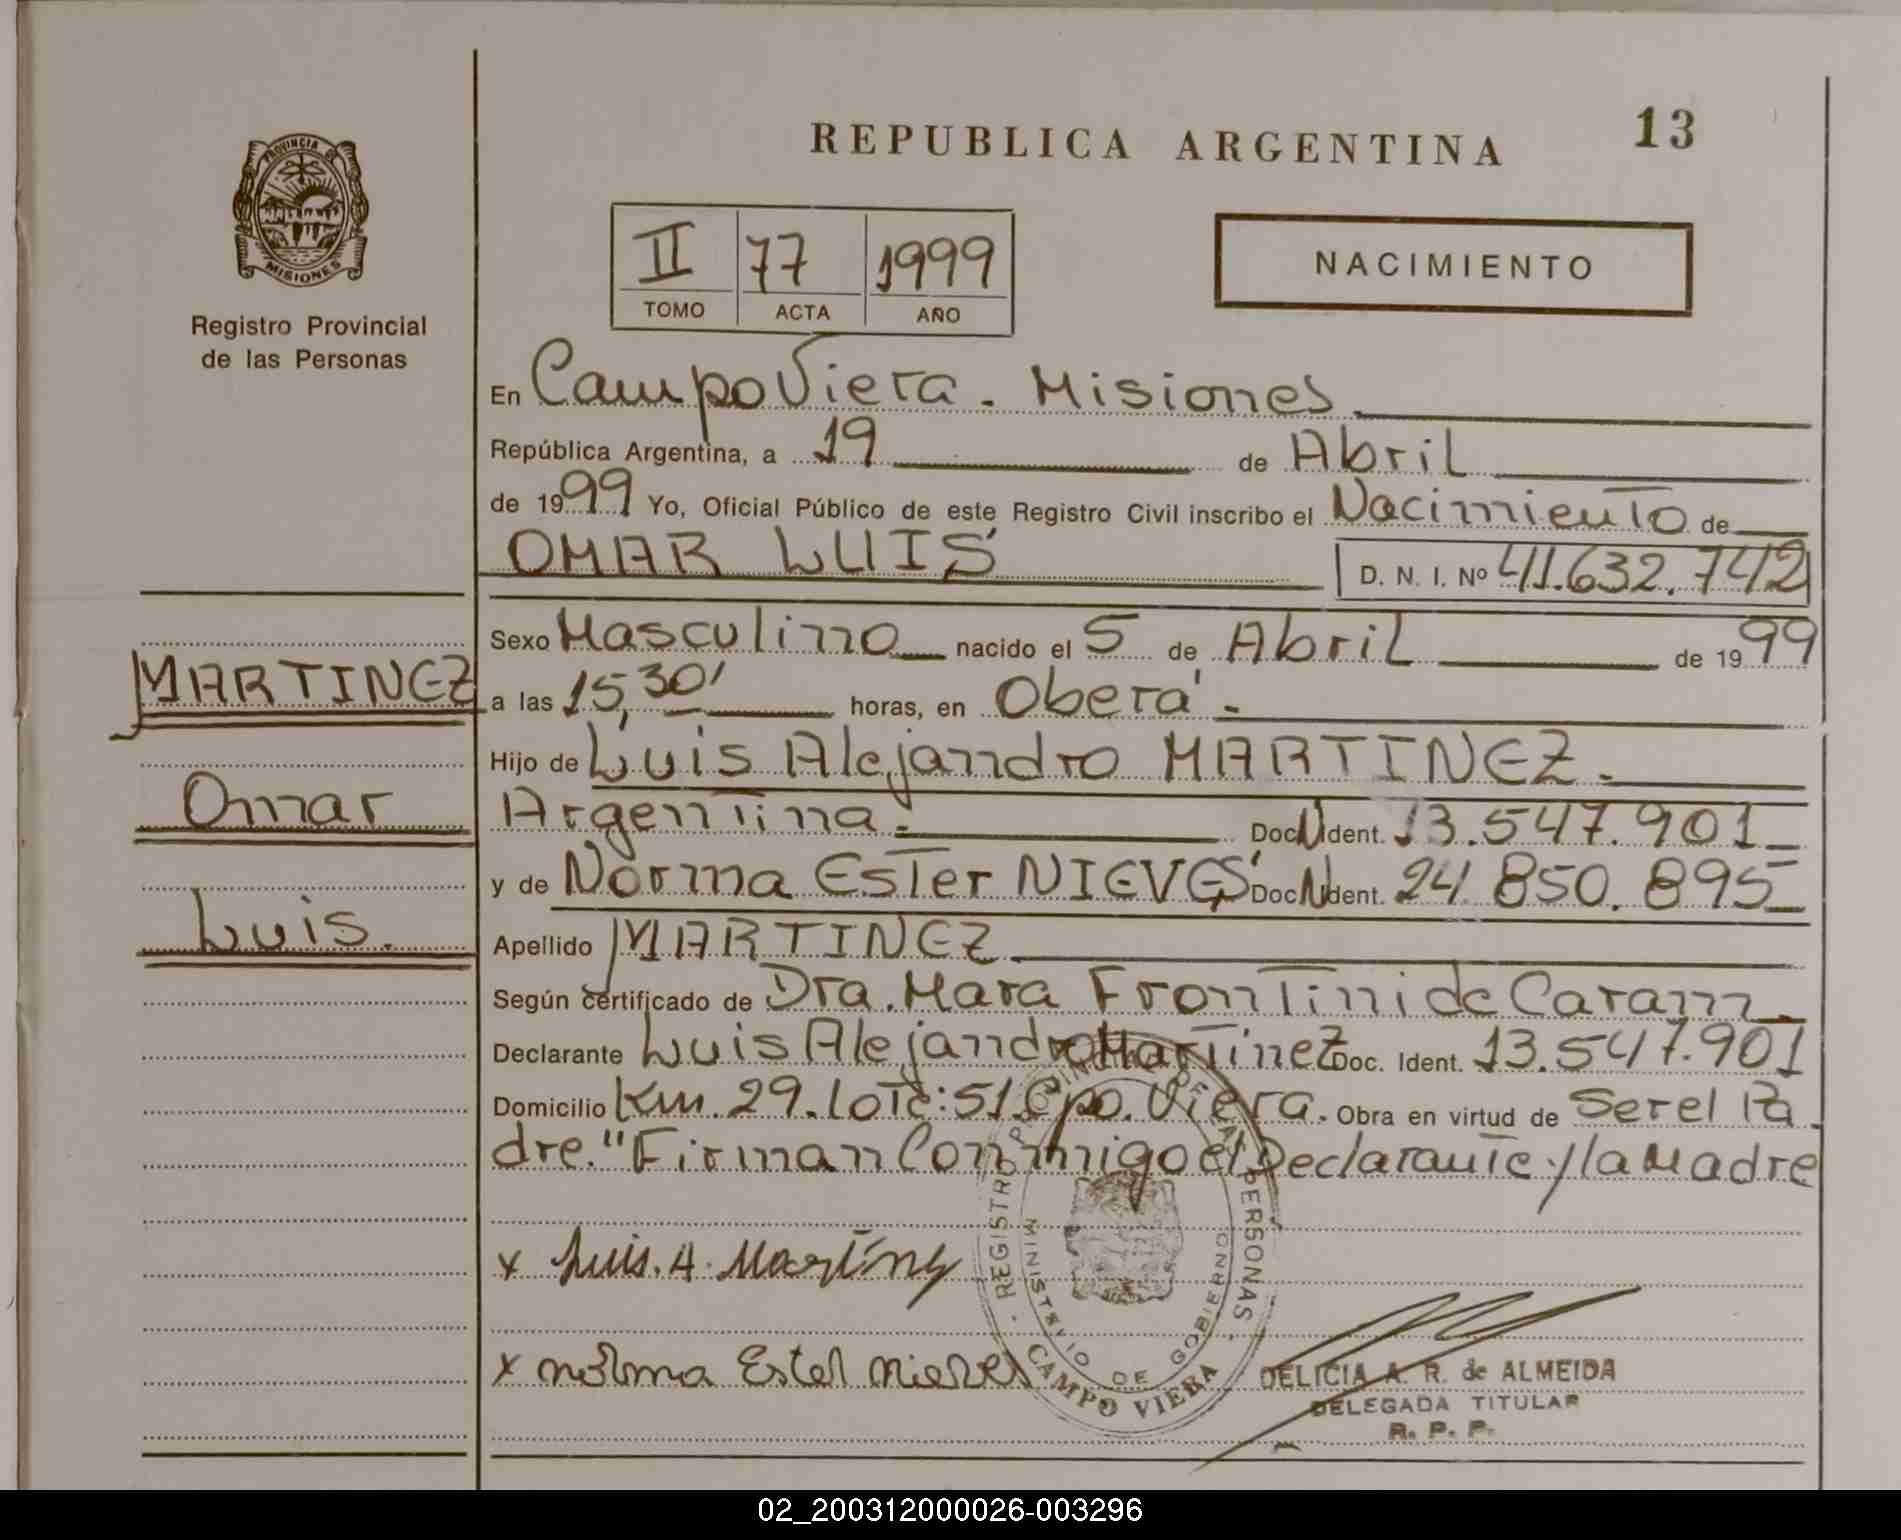 PROVINCIA DE
MISIONES
Registro Provincial
de las Personas
REPUBLICA ARGENTINA
13
II 77 1999
TOMO ACTA AÑO
NACIMIENTO
En Campo Viera. Misiones
República Argentina, a 19 de Abril
de 1999 Yo, Oficial Público de este Registro Civil inscribo el Nacimiento de
OMAR LUIS
D. N. I. Nº 41.632.742
Sexo Masculino nacido el 5 de Abril de 1999
MARTINEZ
a las 15,30' horas, en Oberá.-
Hijo de Luis Alejandro MARTINEZ.
Omar
Argentina.- Doc N Ident. 13.547.901
y de Norma Ester NIEVES Doc N Ident. 24.850.895
Luis.
Apellido MARTINEZ
Según certificado de Dra. Mara Frontini de Caram.
Declarante Luis Alejandro Martinez Doc. Ident. 13.547.901
Domicilio Km. 29. Lote: 51. Cpo. Viera. Obra en virtud de Ser el Pa
dre. "Firman Conmigo el Declarante y la Madre
x Luis. A. Martínez
x norma Ester nieves
REGISTRO PROVINCIAL DE LAS PERSONAS
MINISTERIO DE GOBIERNO
CAMPO VIERA
DELICIA A. R. de ALMEIDA
DELEGADA TITULAR
R. P. P.
02_200312000026-003296